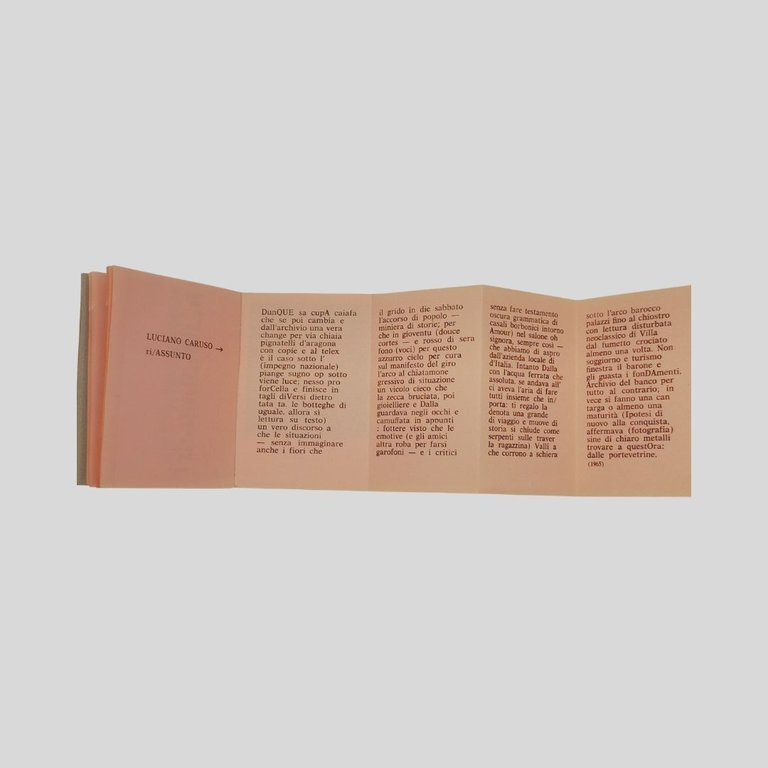 LUCIANO CARUSO →
ri/ASSUNTO
DunQUE sa cupA caiafa
che se poi cambia e
dall'archivio una vera
change per via chiaia
pignatelli d'aragona
con copie e al telex
è il caso sotto l'
(impegno nazionale)
piange sugno op sotto
viene luce; nesso pro
forCella e finisce in
tagli diVersi dietro
tata ta. le botteghe di
uguale. allora si
lettura su testo)
un vero discorso a
che le situazioni
— senza immaginare
anche i fiori che
il grido in die sabbato
l'accorso di popolo —
miniera di storie; per
che in gioventu (dove
cortes — e rosso di sera
fono (voci) per questo
azzurro cielo per cura
sul manifesto del giro
l'arco al chiatamone
gressivo di situazione
un vicolo cieco che
la zecca bruciata, poi
gioielliere e Dalla
guardava negli occhi e
camuffata in appunti
: fottere visto che le
emotive (e gli amici
altra roba per farsi
garofoni — e i critici
senza fare testamento
oscura grammatica di
casali borbonici intorno
Amour) nel salone oh
signora, sempre così —
che abbiamo di aspro
dall'azienda locale di
d'Italia. Intanto Dalla
con l'acqua ferrata che
assoluta. se andava all'
ci aveva l'aria di fare
tutti insieme che in/
porta: ti regalo la
denota una grande
di viaggio e nuove di
storia si chiude come
serpenti sulle traver
la ragazzina) Valli a
che corrono a schiera
sotto l'arco barocco
palazzi fino al chiostro
con lettura disturbata
neoclassico di Villa
dal fumetto crociato
almeno una volta. Non
soggiorno e turismo
finestra il barone e
gli guasta i fonDAmenti.
Archivio del banco per
tutto al contrario; in
vece si fanno una can
targa o almeno una
maturità (Ipotesi di
nuovo alla conquista,
affermava (fotografia)
sine di chiaro metalli
trovare a questOra:
dalle portevetrine.
(1965)